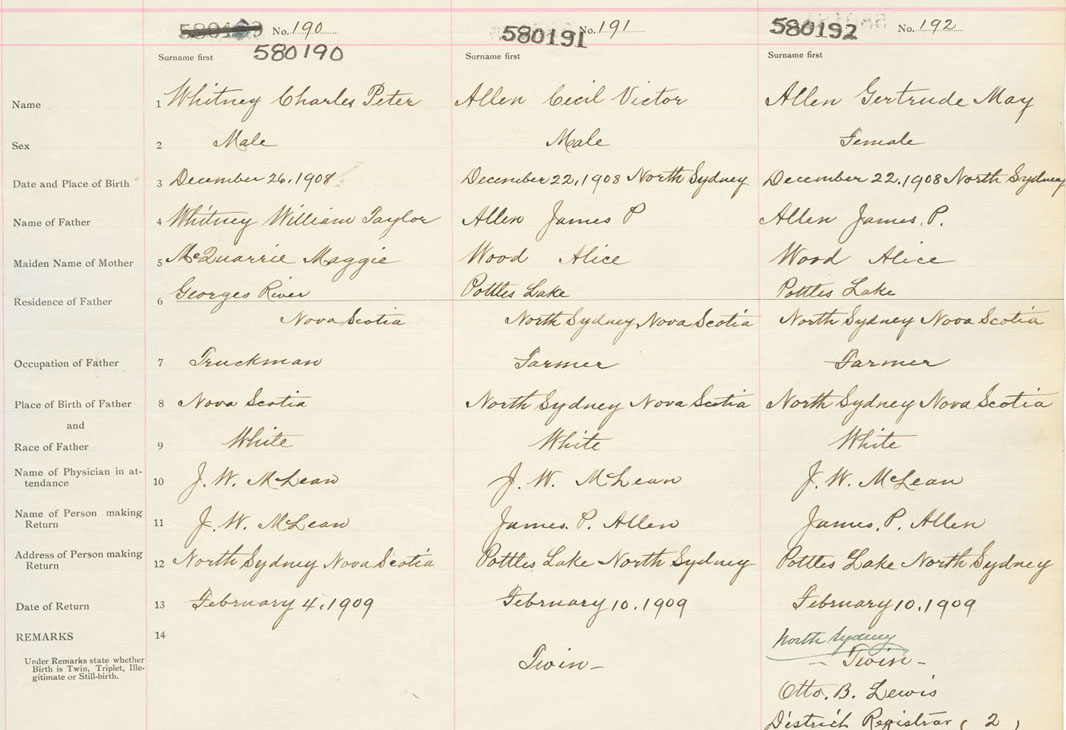 No. 190 580191 No. 191 580192 No. 192
Surname first 580190 Surname first Surname first
Name 1 Whitney Charles Peter Allen Cecil Victor Allen Gertrude May
Sex 2 Male Male Female
Date and Place of Birth 3 December 26, 1908 December 22, 1908 North Sydney December 22, 1908 North Sydney
Name of Father 4 Whitney William Taylor Allen James P Allen James. P.
Maiden Name of Mother 5 McQuarrie Maggie Wood Alice Wood Alice
Residence of Father 6 Georges River Pottles Lake Pottles Lake
Nova Scotia North Sydney Nova Scotia North Sydney Nova Scotia
Occupation of Father 7 Truckman Farmer Farmer
Place of Birth of Father 8 Nova Scotia North Sydney Nova Scotia North Sydney Nova Scotia
and
Race of Father 9 White White White
Name of Physician in at-
tendance 10 J. W. McLean J. W. McLean J. W. McLean
Name of Person making
Return 11 J. W. McLean James. P. Allen James. P. Allen
Address of Person making
Return 12 North Sydney Nova Scotia Pottles Lake North Sydney Pottles Lake North Sydney
Date of Return 13 February 4, 1909 February 10, 1909 February 10, 1909
REMARKS 14 North Sydney
Under Remarks state whether
Birth is Twin, Triplet, Ille-
gitimate or Still-birth.
Twin - - Twin -
Otto. B. Lewis
District Registrar ( 2 )